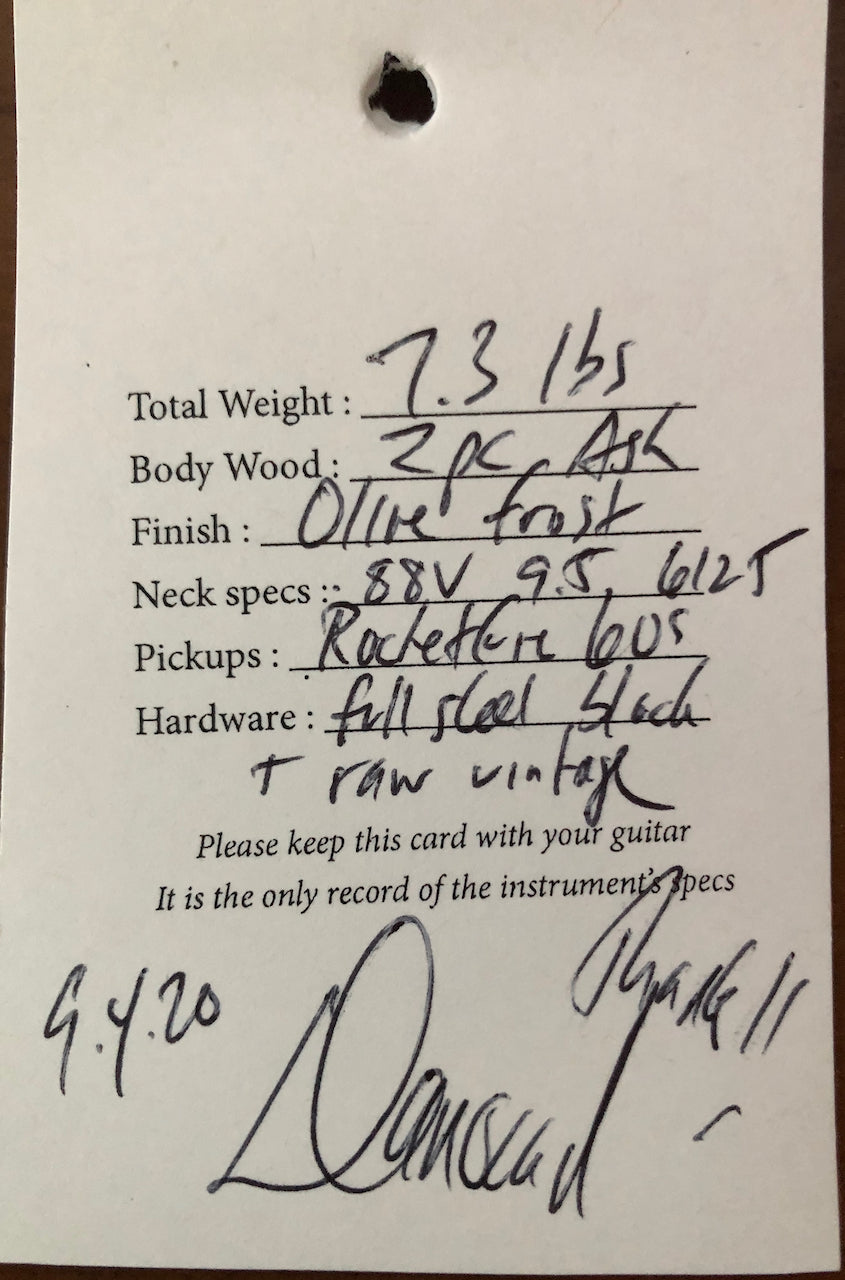 Total Weight : 7.3 lbs
Body Wood : 2 pc Ash
Finish : Olive frost
Neck specs : 88V 9.5, 6125
Pickups : Rocketfire 60s
Hardware : full steel black
+ raw vintage
Please keep this card with your guitar
It is the only record of the instrument's specs
Thanks!!
9.4.20